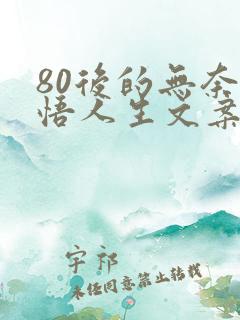 80後的無奈
悟人生文案
宇祁
未经同意禁止转载